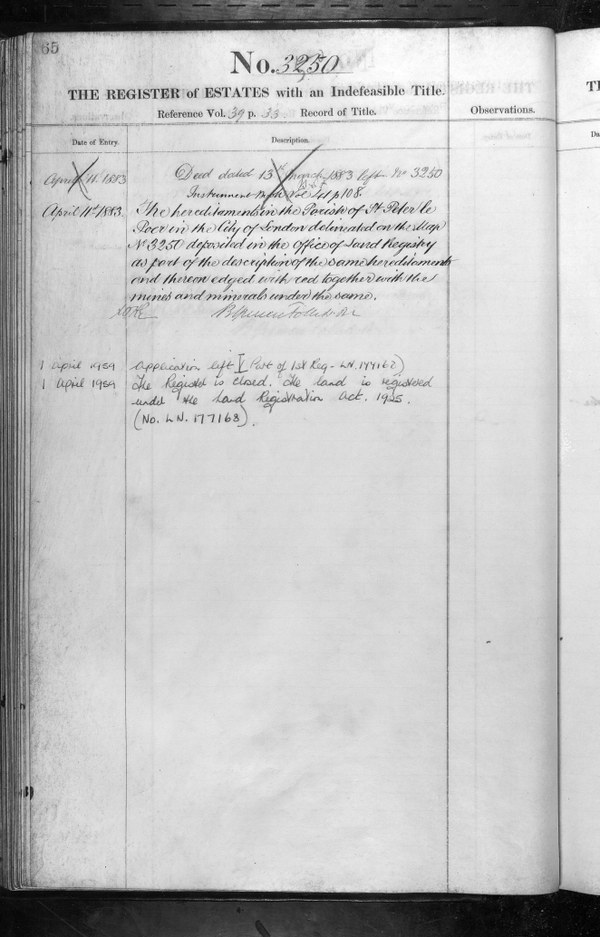 65
No. 3250
THE REGISTER of ESTATES with an Indefeasible Title.
Reference Vol. 39 p. 33 Record of Title.
Observations.
Date of Entry.
Description.
April 11. 1883
Deed dated 13th March 1883 left No 3250
Instrument Vol 41 p 108.
April 11th 1883.
The hereditaments in the Parish of St Peter le
Poer in the City of London delineated on the Map
No 3250 deposited in the Office of Land Registry
as part of the description of the same hereditaments
and thereon edged with red together with the
mines and minerals under the same.
1 April 1959
Application left [ Part of 1st Reg - LN. 177162)
1 April 1959
The Register is closed. The land is registered
under the Land Registration Act. 1925.
(No. LN. 177163).